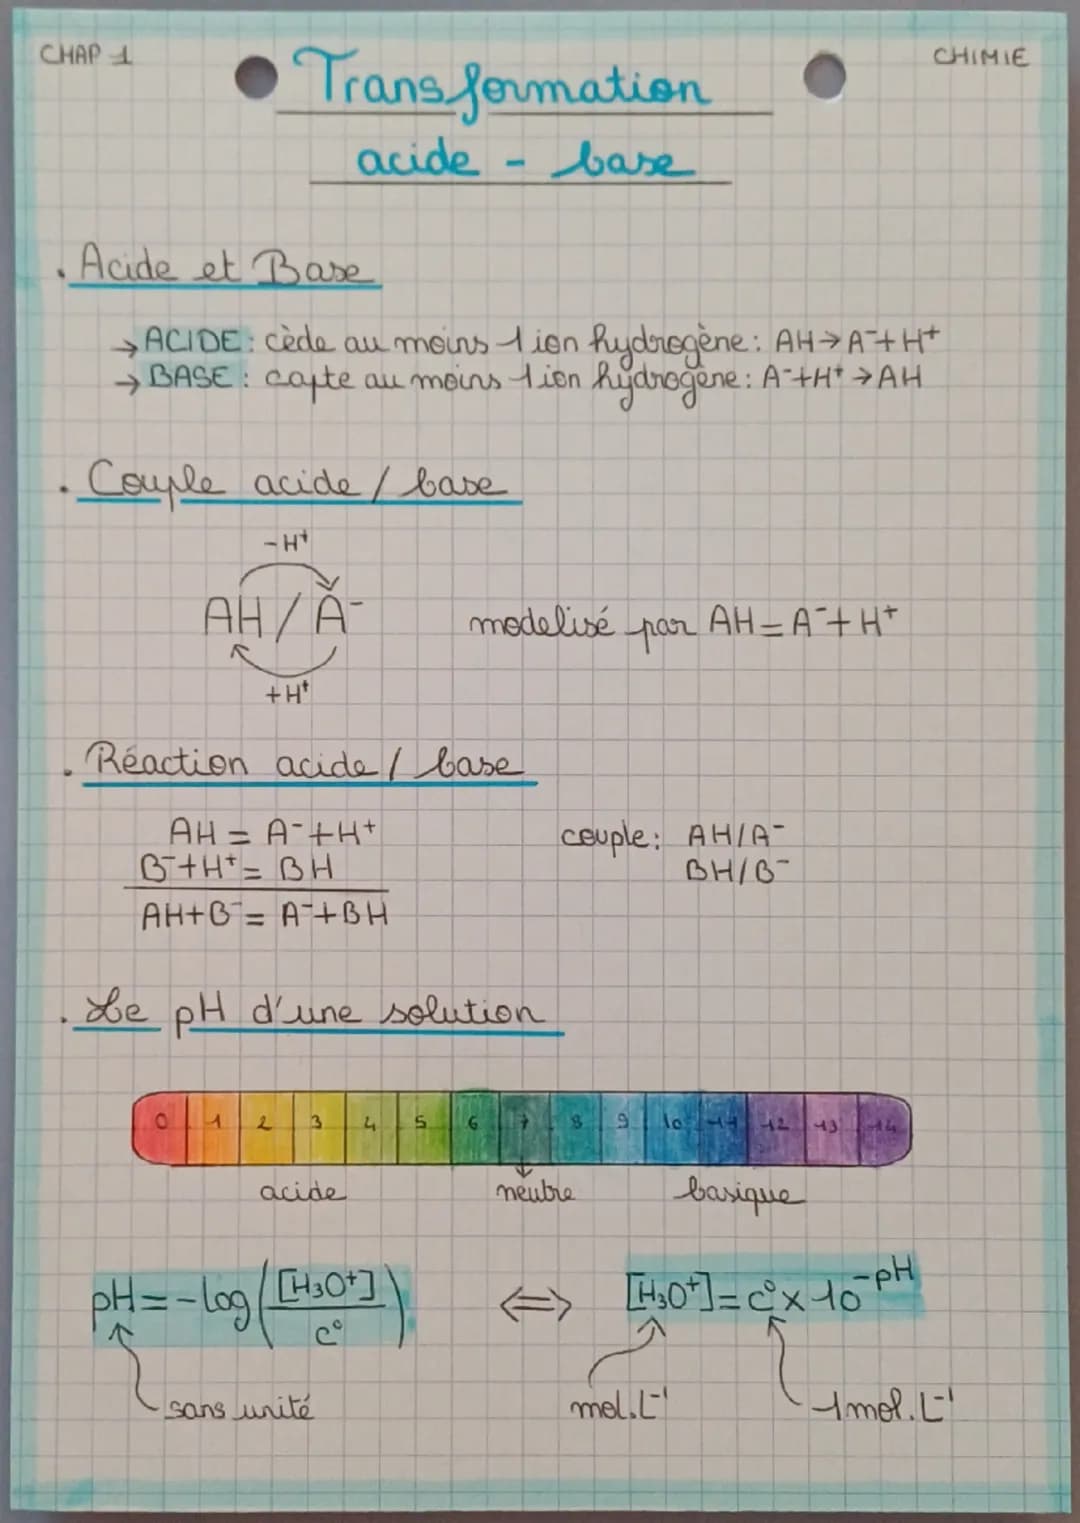 CHAP 1
CHIMIE
Transformation
acide - base
. Acide et Base
→ ACIDE : cède au moins 1 ion hydrogène : AH → A⁻ + H⁺
→ BASE : capte au moins 1 ion hydrogène : A⁻ + H⁺ → AH
. Couple acide / base
- H⁺
AH / A⁻
modelisé par AH = A⁻ + H⁺
+ H⁺
. Réaction acide / base
AH = A⁻ + H⁺
couple : AH/A⁻
B⁻ + H⁺ = BH
BH/B⁻
AH + B⁻ = A⁻ + BH
. Le pH d'une solution
0 1 2 3 4 5 6 7 8 9 10 11 12 13 14
acide neutre basique
pH = -log([H₃O⁺]/c°) ⇔ [H₃O⁺] = c° x 10^-pH
sans unité
mol.L⁻¹
1 mol.L⁻¹